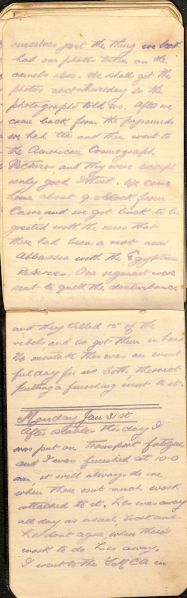 ourselves just the thing we both
had our photos taken on the
camels also. We shall get the
photos next thursday so the
photographer told us. After we
came back from the pyramids
we had tea and then went to
the American Cosmograph
Pictures and they were
only good I think. We came
home about 9 o'clock from
Cairo and we got back to be
greeted with the news that
there had been a riot near
Abbassia with the Egyptian
Reserves. Our regiment were
sent to quell the disturbance
and they killed 15 of the
rebels and we got them in hand
No mistake this was an event
ful day for us both, the riot
putting a finishing event to it.
Monday Jan 31st
After stables this day I
was put on transport fatigue
and I was finished at 10-0
am, it will always do me
when there isnt much work
attached to it. Les was away
all day as usual,
work to do Les away.
I went to the Y.M.C.A in